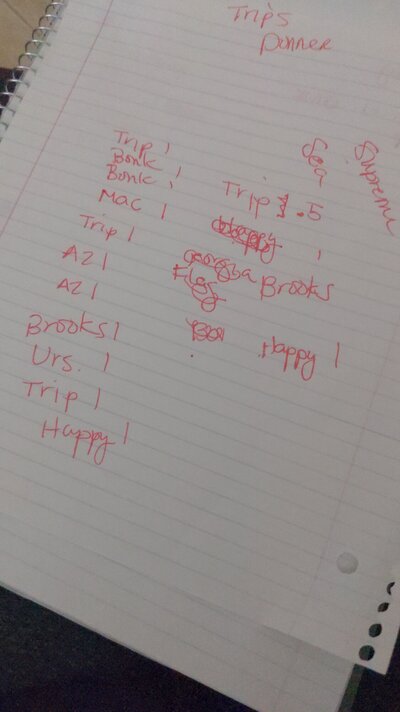 Trip's
Donner
Sea
Supreme
Trip 1
Bonk 1
Bonk 1
Mac 1
Trip 1
AZ 1
AZ 1
Brooks 1
Urs. 1
Trip 1
Happy 1
Trip .5
Happy
georgia Brooks 1
Figs
Happy 1